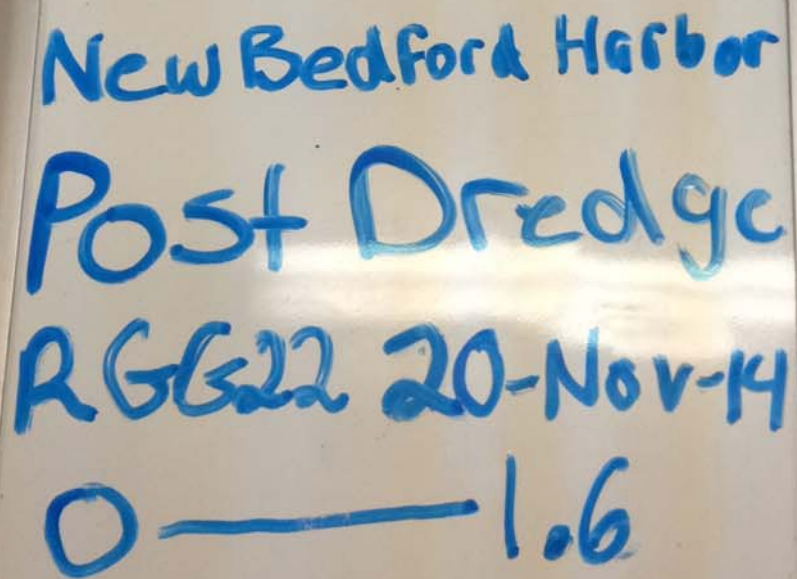 New Bedford Harbor
Post Dredge
RGG22 20-Nov-14
0 — 1.6